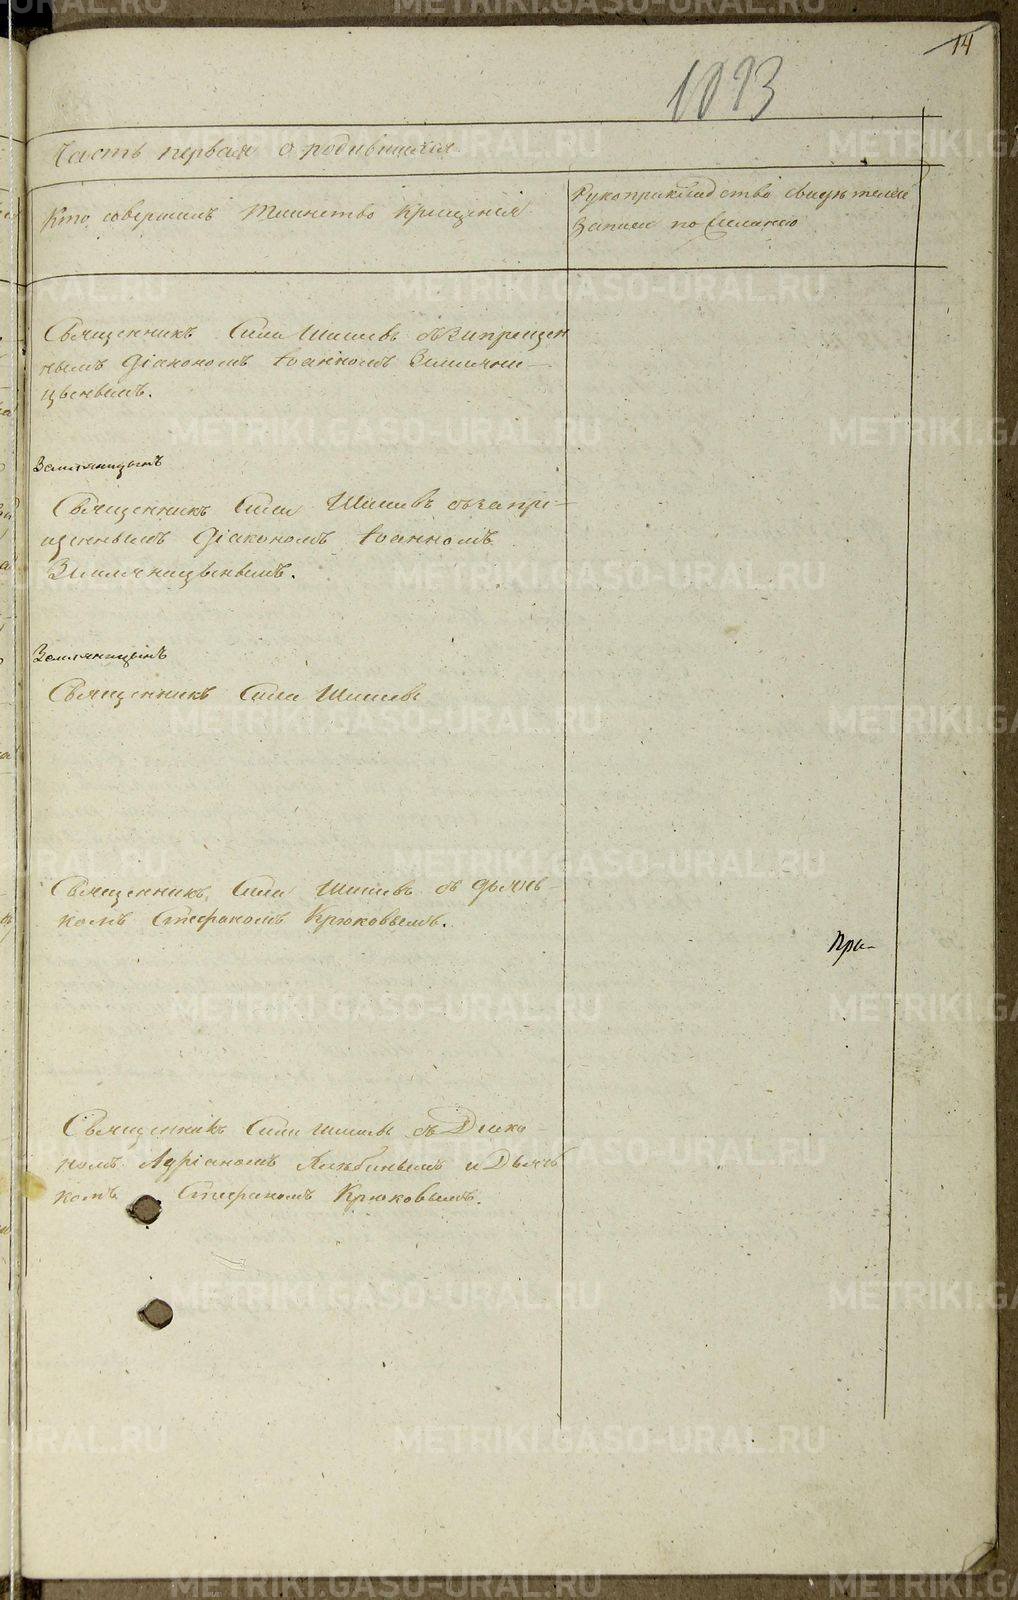 14
1093
Часть первая о родившихся
Кто совершилъ таинство крещенія
Рукоприкладство свидѣтелей
записи по желанію
Священникъ Сила Шишевъ съ запрещен
нымъ Діакономъ Іоанномъ Земляни-
цынымъ.
Земляницынъ
Священникъ Сила Шишевъ съ запре-
щеннымъ Діакономъ Іоанномъ
Земляницынымъ.
Земляницынъ
Священникъ Сила Шишевъ
Священникъ Сила Шишевъ съ дьяч-
комъ Стефаномъ Крюковымъ.
При-
Священникъ Сила Шишевъ съ Діако-
номъ Адріаномъ и Дьяч
комъ Стефаномъ Крюковымъ.
METRIKI.GASO-URAL.RU